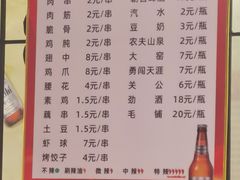 肉串 2元/串
肉筋 2元/串 汽水 2元/瓶
脆骨 2元/串 豆奶 3元/瓶
鸡肫 2元/串 农夫山泉 2元/瓶
翅中 8元/串 大窑 7元/瓶
鸡爪 8元/串 勇闯天涯 7元/瓶
腰花 4元/串 关公 6元/瓶
素鸡 1.5元/串 劲酒 18元/瓶
藕串 1.5元/串 毛铺 20元/瓶
土豆 1.5元/串
虾球 7元/串
烤饺子 4元/串
不辣 刷辣油 微辣 中辣 特辣